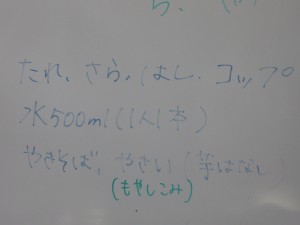 ら、
たれ、さら、はし、コップ
水500ml(1人1本)
やきそば、やさい(芋はなし
(もやしこみ)